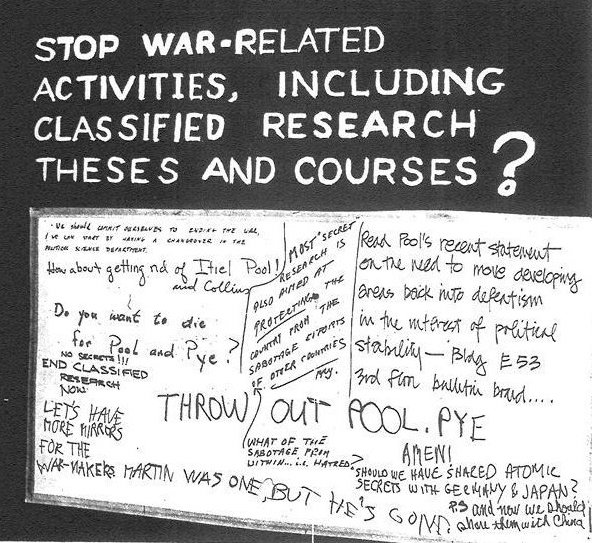 STOP WAR-RELATED
ACTIVITIES, INCLUDING
CLASSIFIED RESEARCH
THESES AND COURSES?
"We should commit ourselves to ending the war,
& we can start by having a changeover in the
political science department.
How about getting rid of Itiel Pool!
and Collins
Do you want to die
for Pool and Pye?
NO SECRETS!!!
END CLASSIFIED
RESEARCH
NOW
LET'S HAVE
MORE MIRRORS
FOR THE
WAR-MAKERS
MOST SECRET
RESEARCH IS
ALSO AIMED AT
PROTECTING THE
COUNTRY FROM THE
SABOTAGE EFFORTS
OF OTHER COUNTRIES
WHAT OF THE
SABOTAGE FROM
WITHIN...i.e. HATRED
Read Pool's recent statement
on the need to move developing
areas back into defeatism
in the interest of political
stability — Bldg E53
3rd floor bulletin board....
THROW OUT POOL. PYE
AMEN!
MARTIN WAS ONE, BUT HE'S GONE.
SHOULD WE HAVE SHARED ATOMIC
SECRETS WITH GERMANY & JAPAN?
P.S and now we should
share them with China!